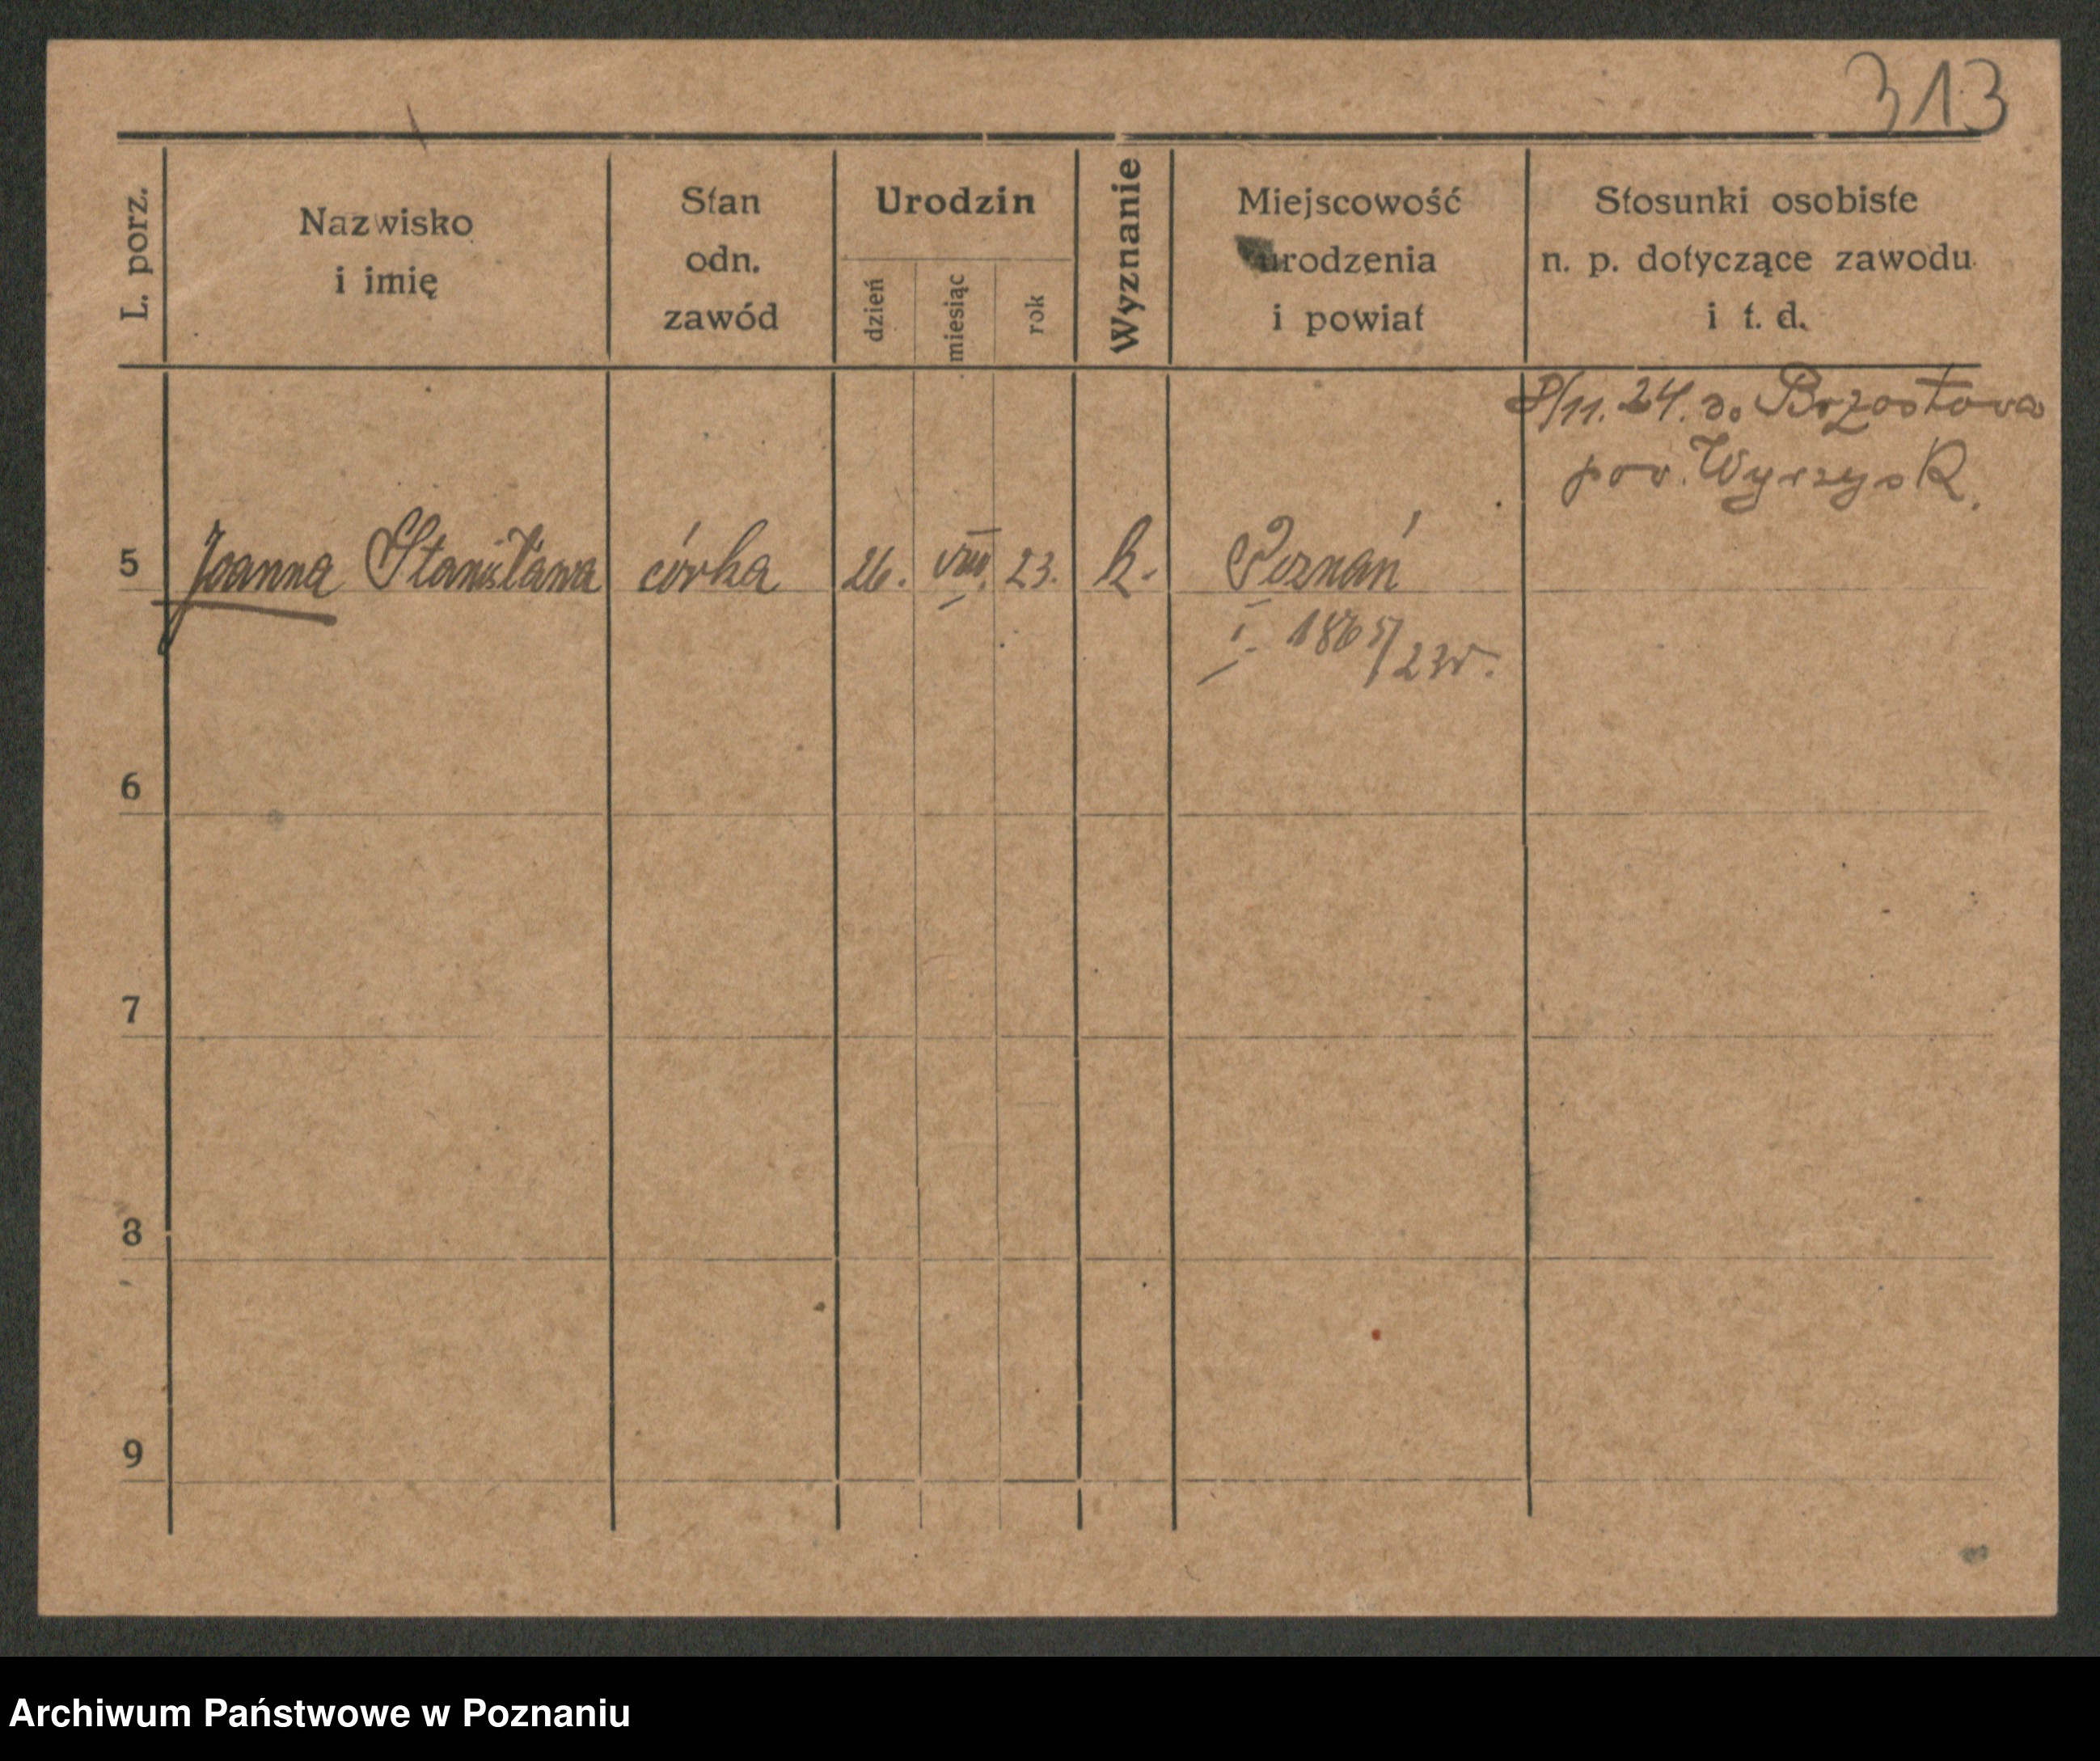 313
L. porz.
Nazwisko
i imię
Stan
odn.
zawód
Urodzin
dzień
miesiąc
rok
Wyznanie
Miejscowość
urodzenia
i powiat
Stosunki osobiste
n. p. dotyczące zawodu
i t. d.
8/11. 24. do Brzostowa
pow. Wyrzysk.
5 Joanna Stanisława córka 26. VIII. 23. k. Poznań
I. 1865/23r.
6
7
8
9
Archiwum Państwowe w Poznaniu